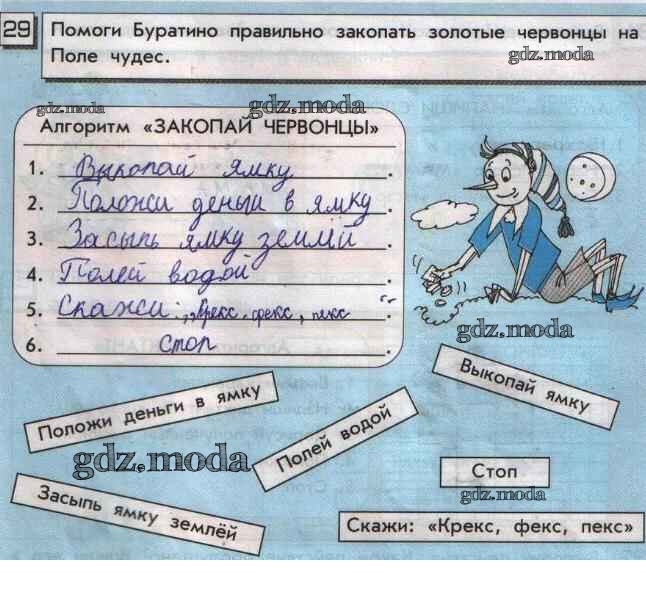 29
Помоги Буратино правильно закопать золотые червонцы на
Поле чудес.
gdz.moda
gdz.moda
gdz.moda
Алгоритм «ЗАКОПАЙ ЧЕРВОНЦЫ»
1. Выкопай ямку.
2. Положи деньги в ямку.
3. Засыпь ямку землёй.
4. Полей водой.
5. Скажи: „Крекс, фекс, пекс“.
6. Стоп.
gdz.moda
Положи деньги в ямку
Полей водой
Выкопай ямку
gdz.moda
Стоп
gdz.moda
Засыпь ямку землёй
Скажи: «Крекс, фекс, пекс»